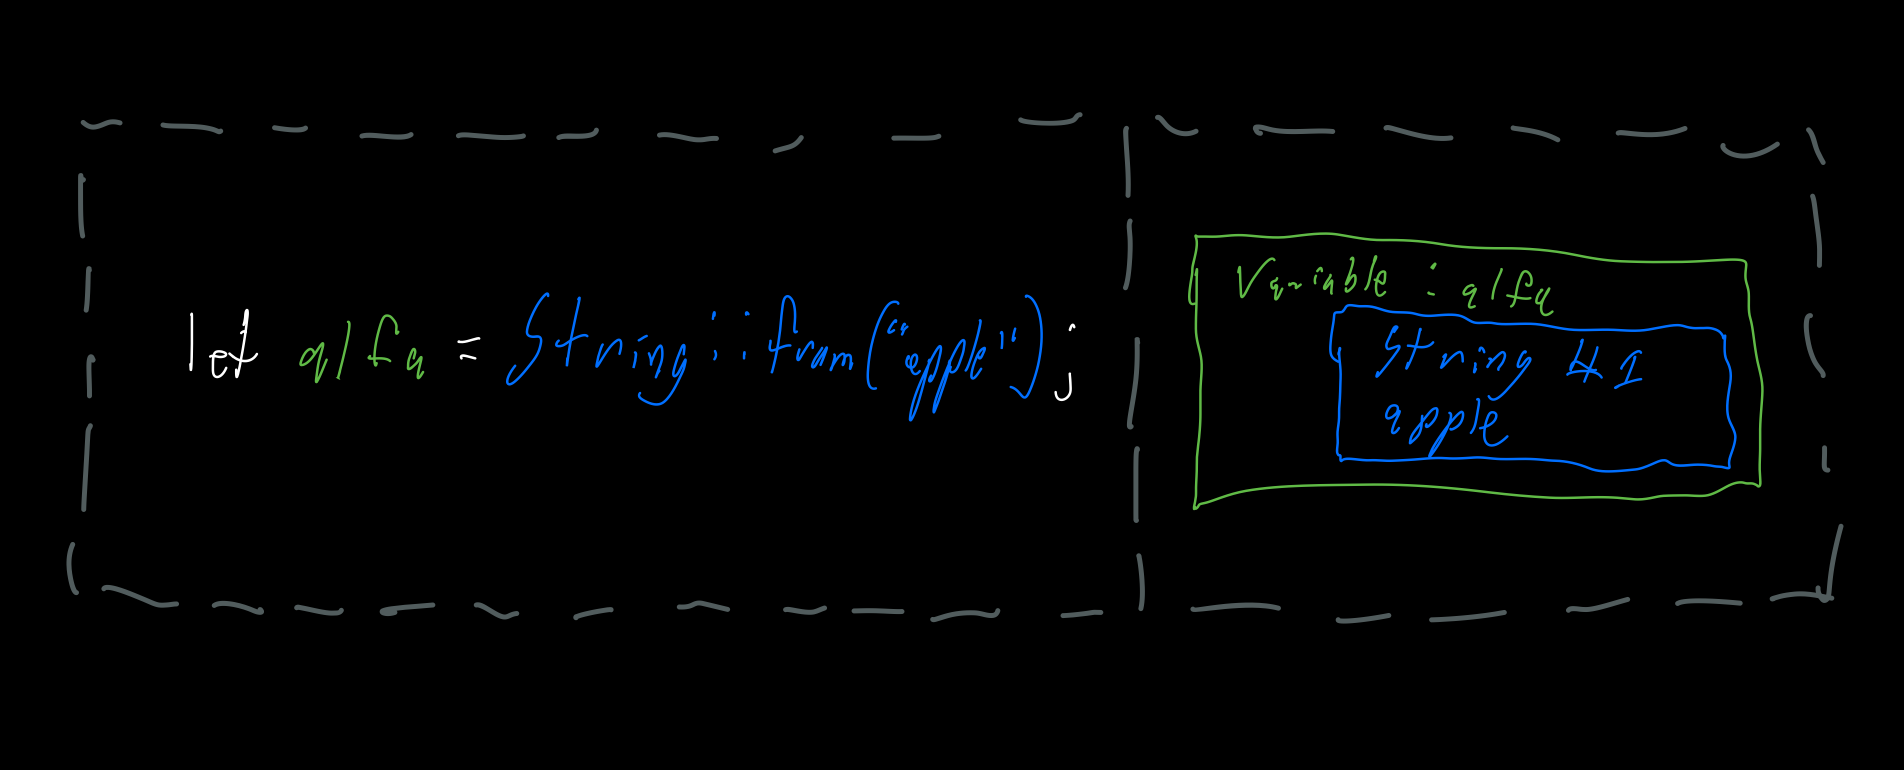 let alfa = String::from("apple");
Variable : alfa
String #1
apple